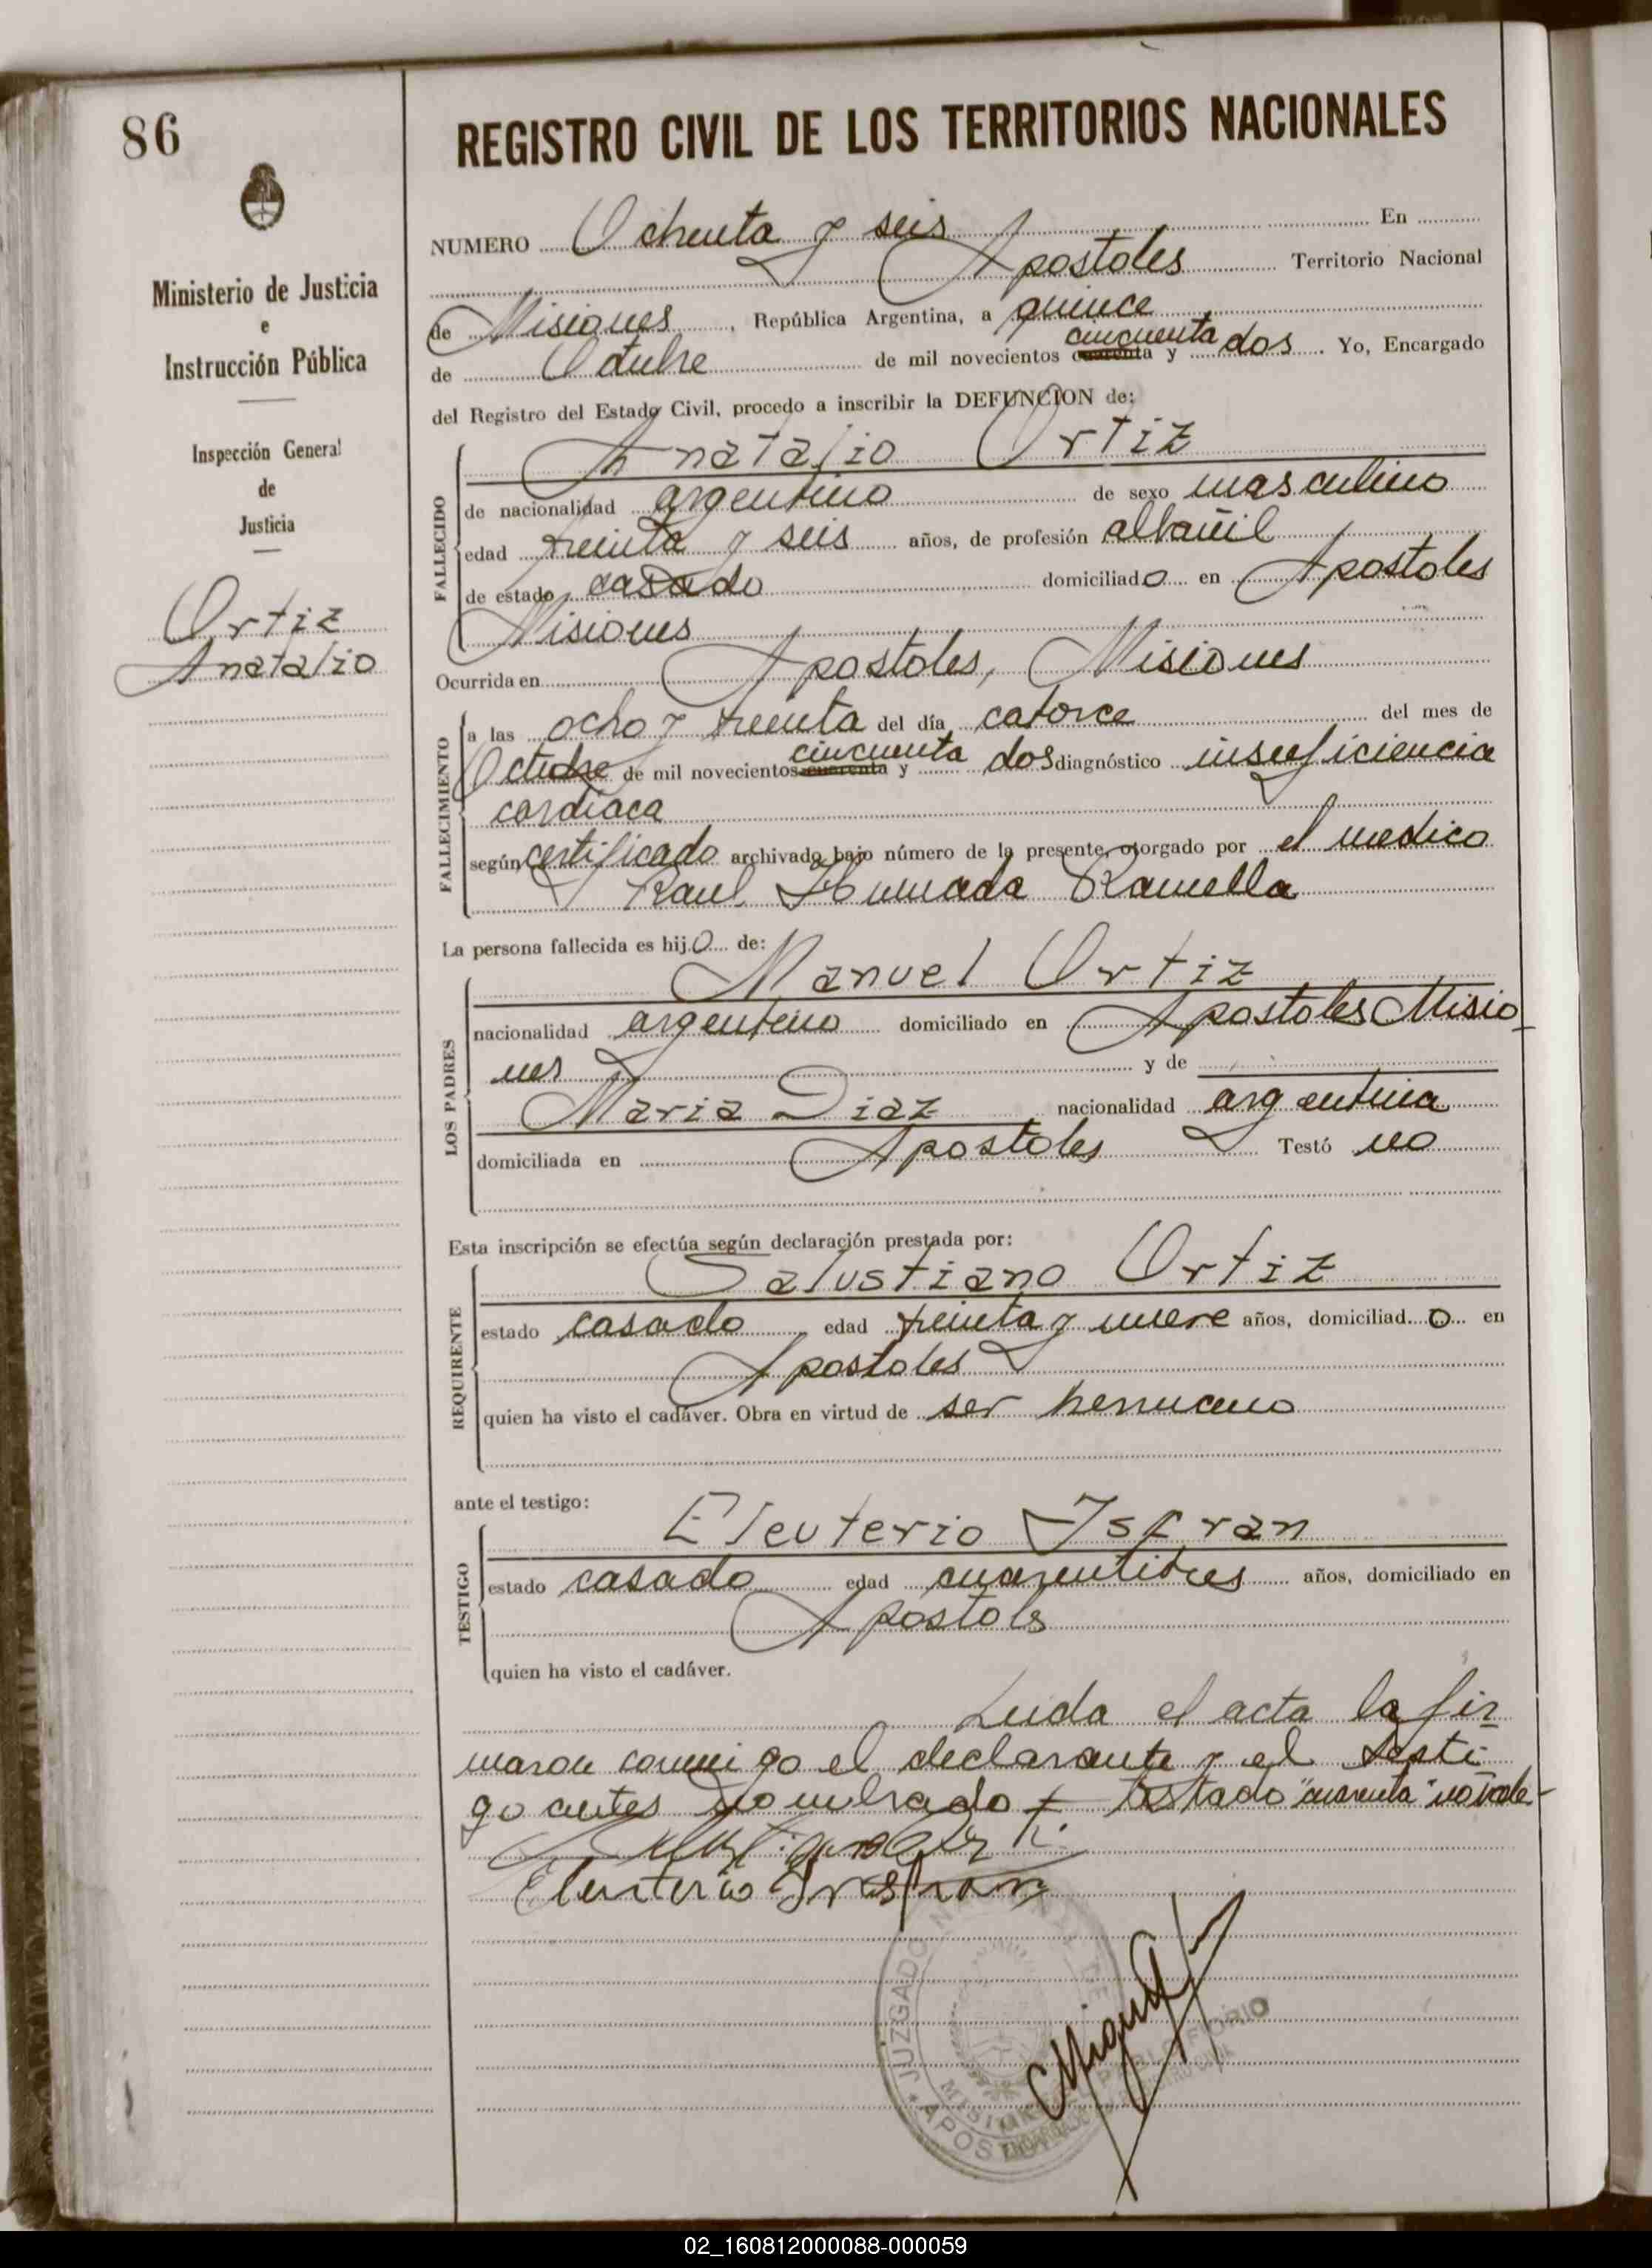 86
Ministerio de Justicia
e
Instrucción Pública
Inspección General
de
Justicia
Ortiz
Anatalio
REGISTRO CIVIL DE LOS TERRITORIOS NACIONALES
NUMERO Ochenta y seis En
Apostoles Territorio Nacional
de Misiones, República Argentina, a quince
cincuenta
de Octubre de mil novecientos cuarenta y dos. Yo, Encargado
del Registro del Estado Civil, procedo a inscribir la DEFUNCION de:
Anatalio Ortiz
FALLECIDO
de nacionalidad argentino de sexo masculino
edad treinta y seis años, de profesión albañil
de estado casado domiciliado en Apostoles
Misiones
Ocurrida en Apostoles, Misiones
FALLECIMIENTO
a las ocho y treinta del día catorce del mes de
cincuenta
Octubre de mil novecientos cuarenta y dos diagnóstico insuficiencia
cardiaca
según certificado archivado bajo número de la presente, otorgado por el medico
Raul Humada Ramella
La persona fallecida es hijo de:
Manuel Ortiz
LOS PADRES
nacionalidad argentino domiciliado en Apostoles Misio-
nes y de
Maria Diaz nacionalidad argentina
domiciliada en Apostoles Testó no
Esta inscripción se efectúa según declaración prestada por:
Salustiano Ortiz
REQUIRENTE
estado casado edad treinta y nueve años, domiciliado en
Apostoles
quien ha visto el cadáver. Obra en virtud de ser hermano
ante el testigo:
Eleuterio Isfran
TESTIGO
estado casado edad cuarentitres años, domiciliado en
Apostoles
quien ha visto el cadáver.
Leida el acta la fir-
maron conmigo el declarante y el testi-
go antes nombrado - Testado "cuarenta" no vale-
Eleuterio
JUZGADO
APOS
02_160812000088-000059